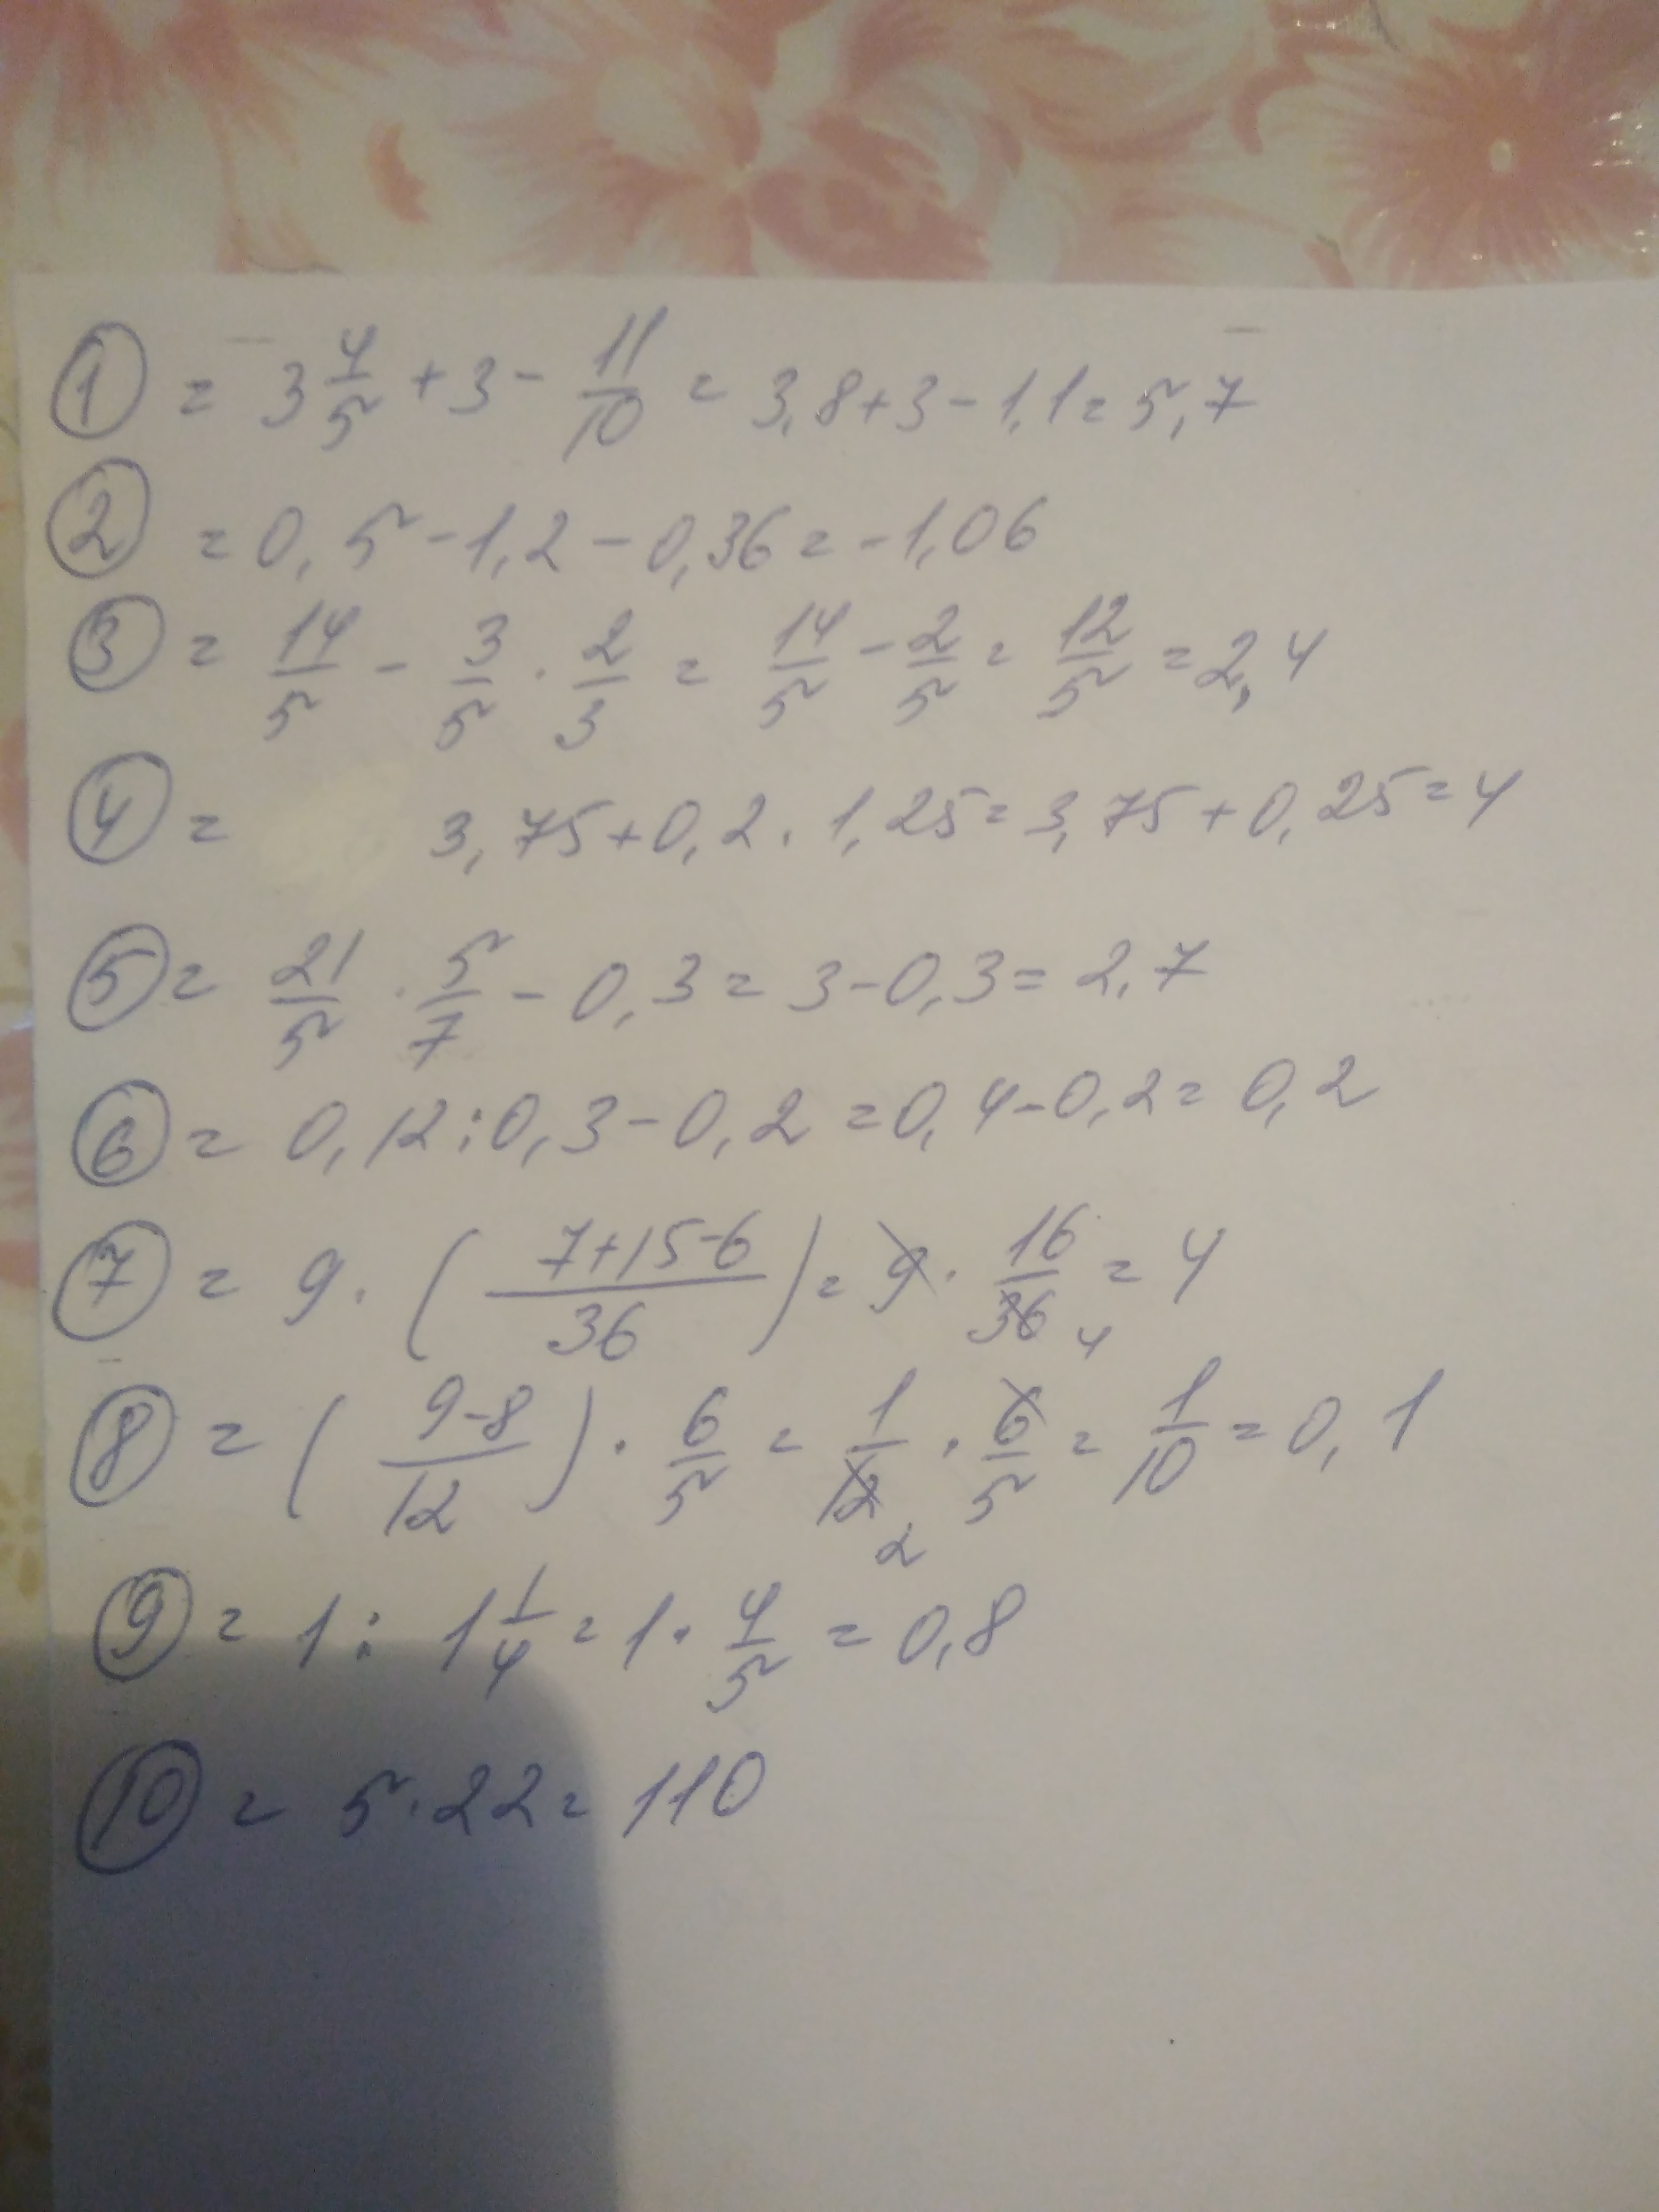 ① = 3 4/5 + 3 - 11/10 = 3,8+3-1,1=5,7
② = 0,5-1,2-0,36=-1,06
③ = 14/5 - 3/5 · 2/3 = 14/5 - 2/5 = 12/5 = 2,4
④ = 3,75+0,2·1,25=3,75+0,25=4
⑤ = 21/5 · 5/7 - 0,3=3-0,3=2,7
⑥ = 0,12:0,3-0,2=0,4-0,2=0,2
⑦ = 9·((7+15-6)/36)=9·16/36 4=4
⑧ = ((9-8)/12)·6/5=1/12 2·6/5=1/10=0,1
⑨ = 1:1 1/4=1·4/5=0,8
⑩ = 5·22=110